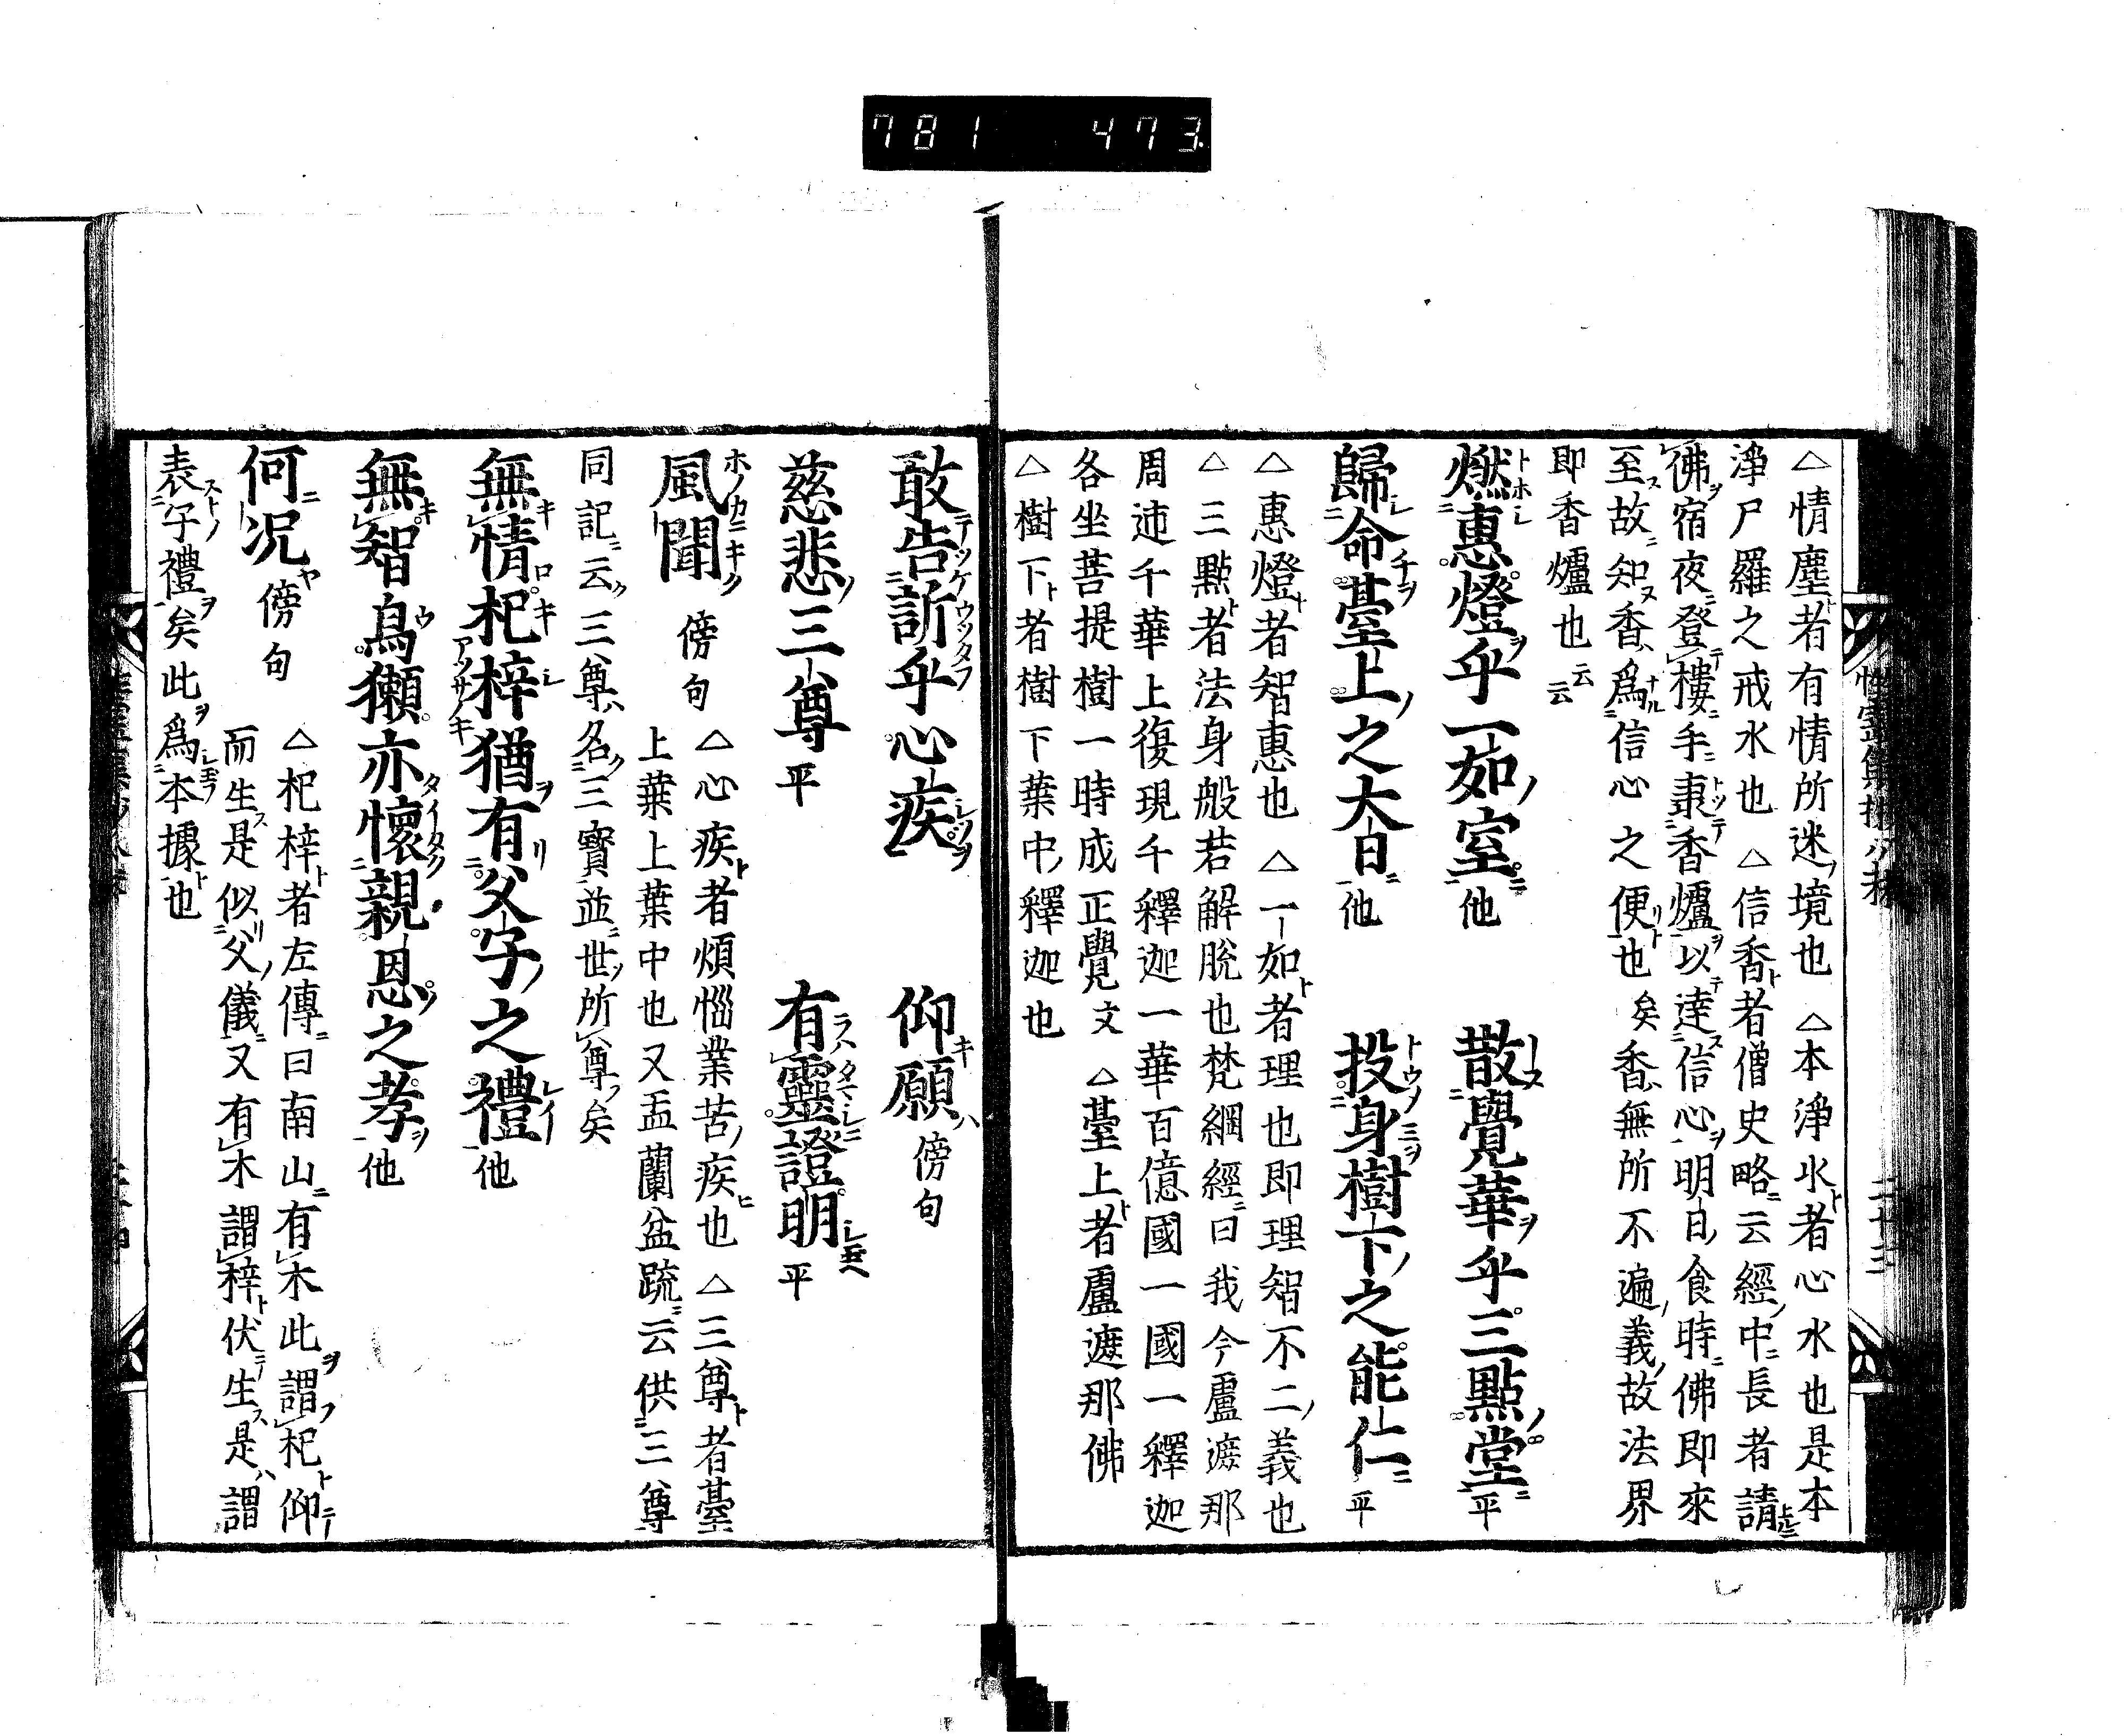 781 473
△情塵者有情所迷境也 △本淨水者心水也是本
淨尸羅之戒水也 △信香者僧史略云經中長者請
佛宿夜登樓手秉香爐以達信心明日食時佛即來
至故知香爲信心之便也矣香無所不遍義故法界
即香爐也云云
燃惠燈乎一如室他 散覺華乎三點堂平
歸命臺上之大日他 投身樹下之能仁平
△惠燈者智惠也 △一如者理也即理智不二義也
△三點者法身般若解脫也梵網經曰我今盧遮那
周迊千華上復現千釋迦一華百億國一國一釋迦
各坐菩提樹一時成正覺文 △臺上者盧遮那佛
△樹下者樹下葉中釋迦也
敢告訴乎心疾 仰願傍句
慈悲三尊平 有靈證明平
風聞傍句 △心疾者煩惱業苦疾也 △三尊者臺
上葉上葉中也又盂蘭盆疏云供三尊
同記云三尊名三寶並世所尊矣
無情杞梓猶有父子之禮他
無智鳥獺亦懷親恩之孝他
何況傍句 △杞梓者左傳曰南山有木此謂杞仰
而生是似父儀又有木謂梓伏生是謂
表子禮矣此爲本據也